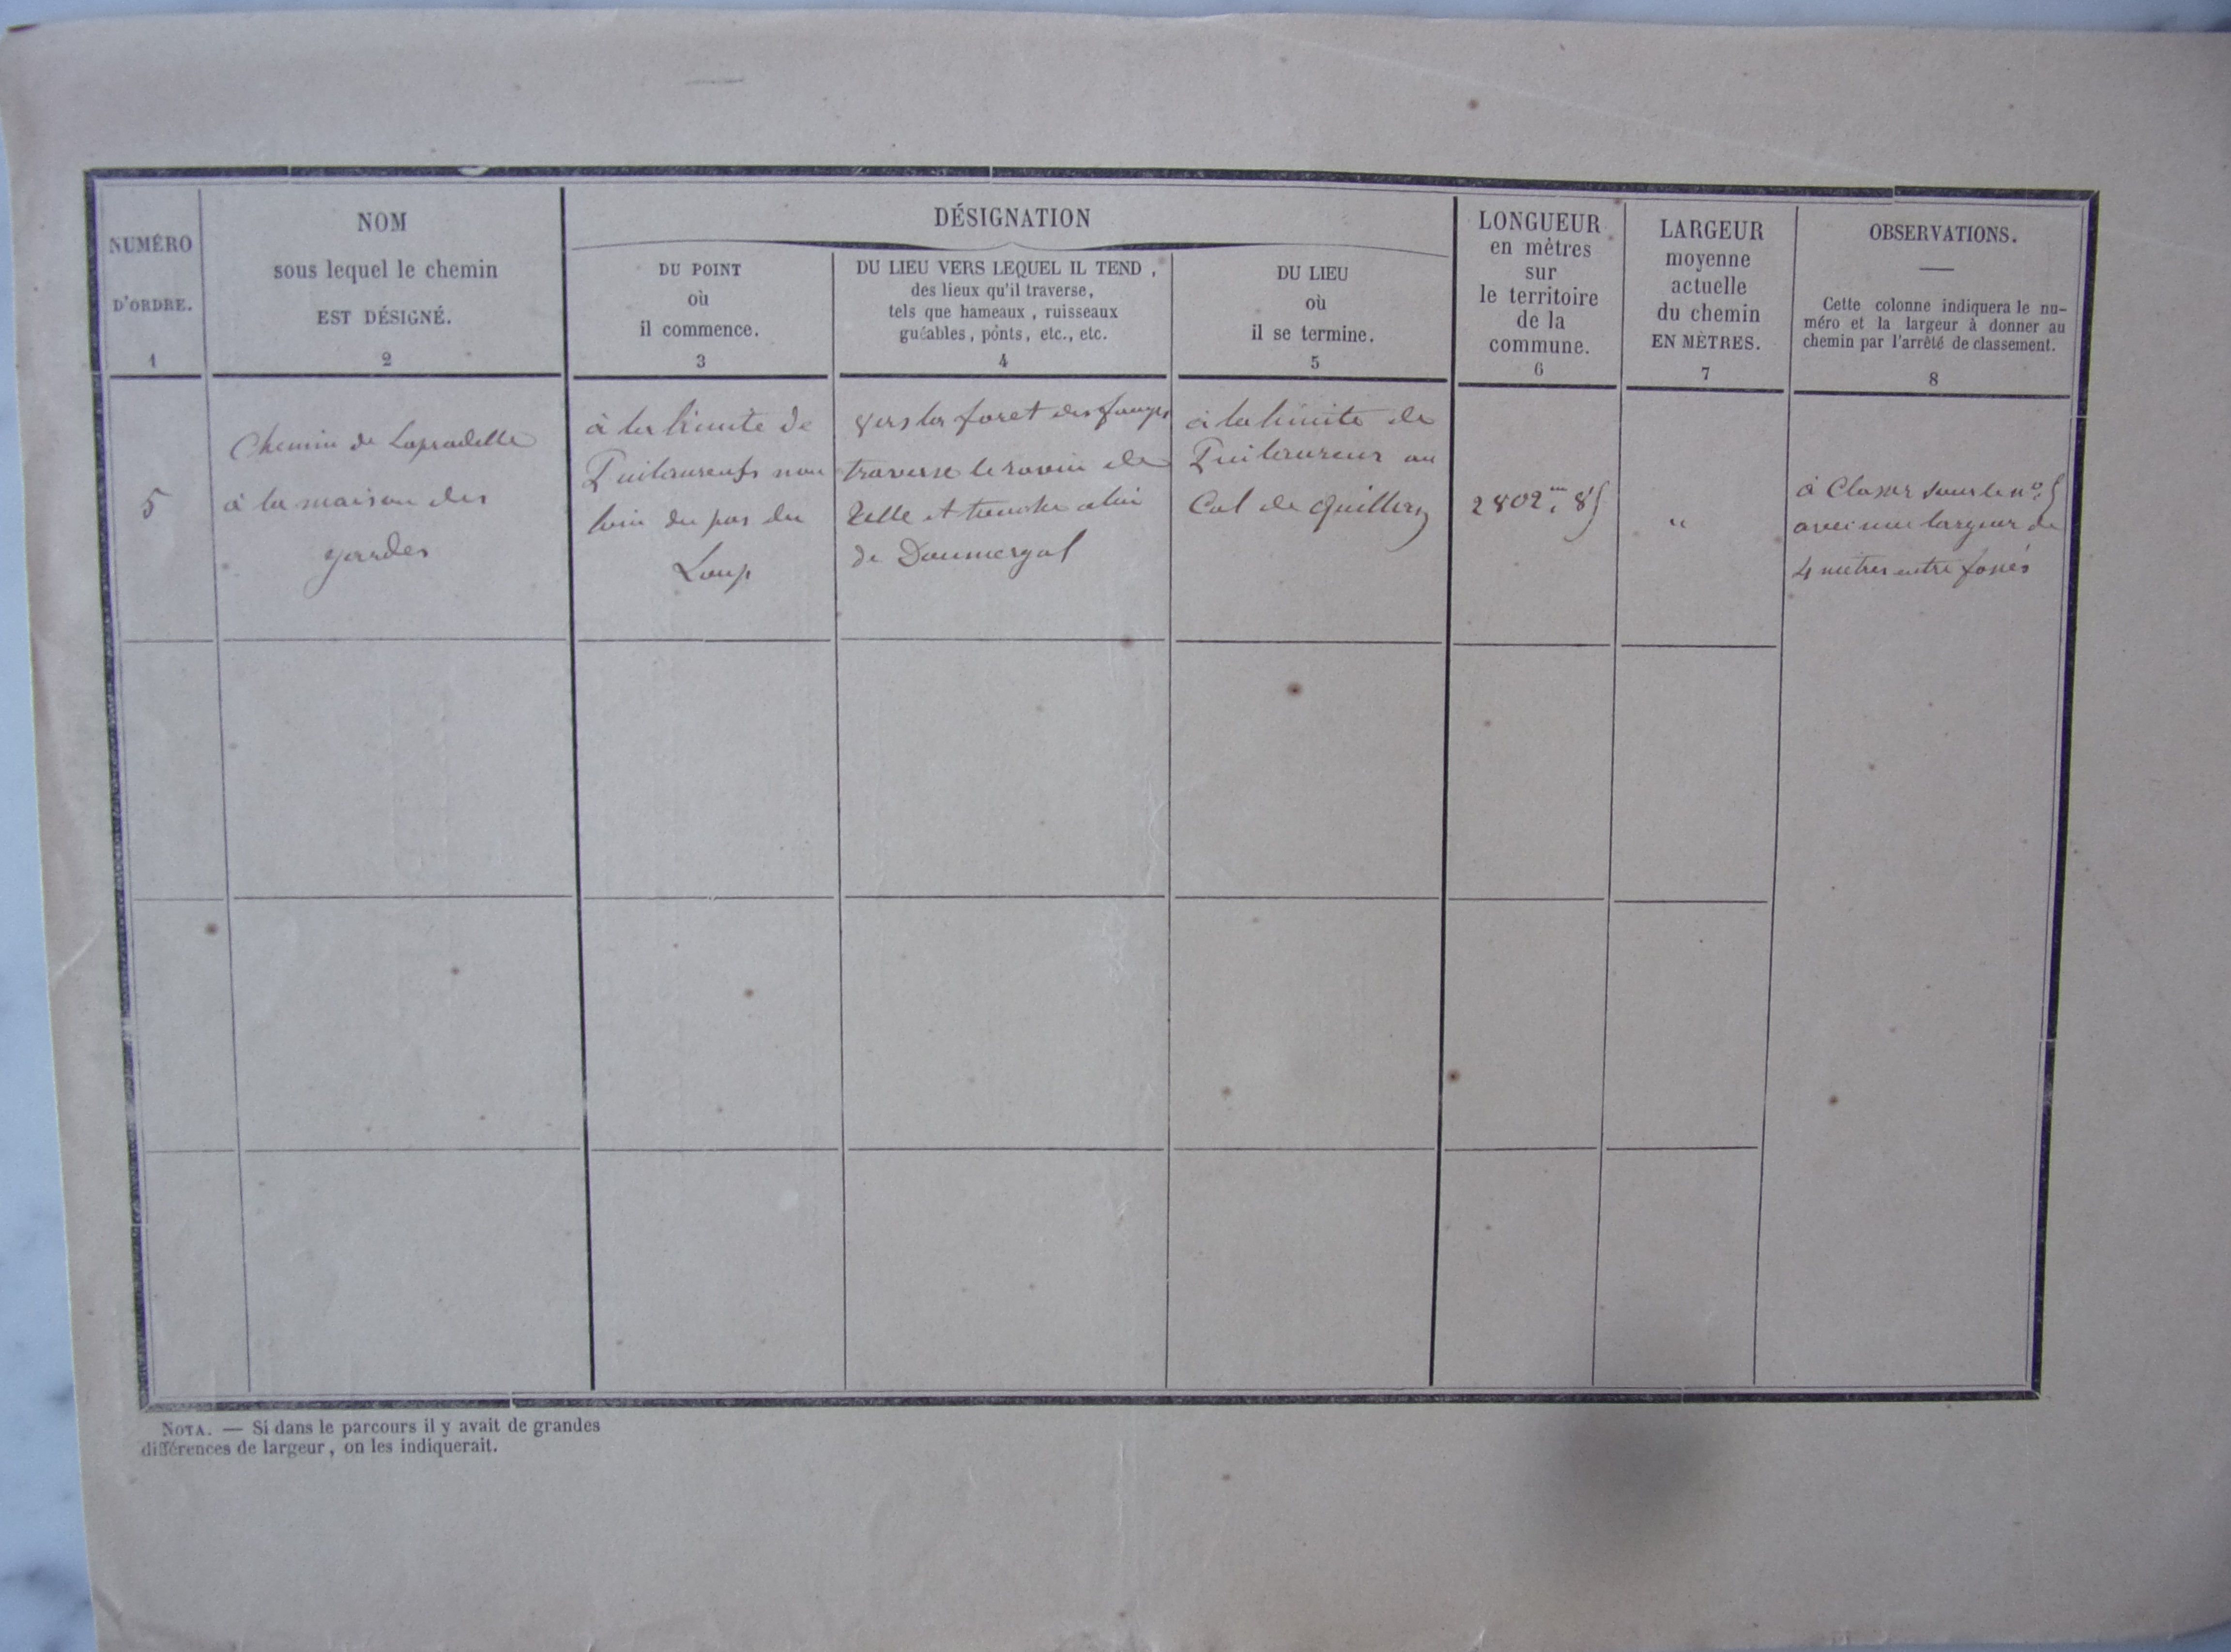 NUMÉRO
D'ORDRE.
1
NOM
sous lequel le chemin
EST DÉSIGNÉ.
2
DÉSIGNATION
DU POINT
où
il commence.
3
DU LIEU VERS LEQUEL IL TEND,
des lieux qu'il traverse,
tels que hameaux, ruisseaux
guéables, ponts, etc., etc.
4
DU LIEU
où
il se termine.
5
LONGUEUR
en mètres
sur
le territoire
de la
commune.
6
LARGEUR
moyenne
actuelle
du chemin
EN MÈTRES.
7
OBSERVATIONS.
Cette colonne indiquera le nu-
méro et la largeur à donner au
chemin par l'arrêté de classement.
8
5
Chemin de Lapradelle
à la maison des
gardes
à la limite de
non
loin du pas du
Loup
vers la foret des fanges
traverse le ravin de
et celui
de Doumergal
à la limite de
Puilaurens au
Col de
2802m,85
"
à Classer sous le n° 5
avec une largeur de
4 mètres entre fossés
NOTA. — Si dans le parcours il y avait de grandes
différences de largeur, on les indiquerait.